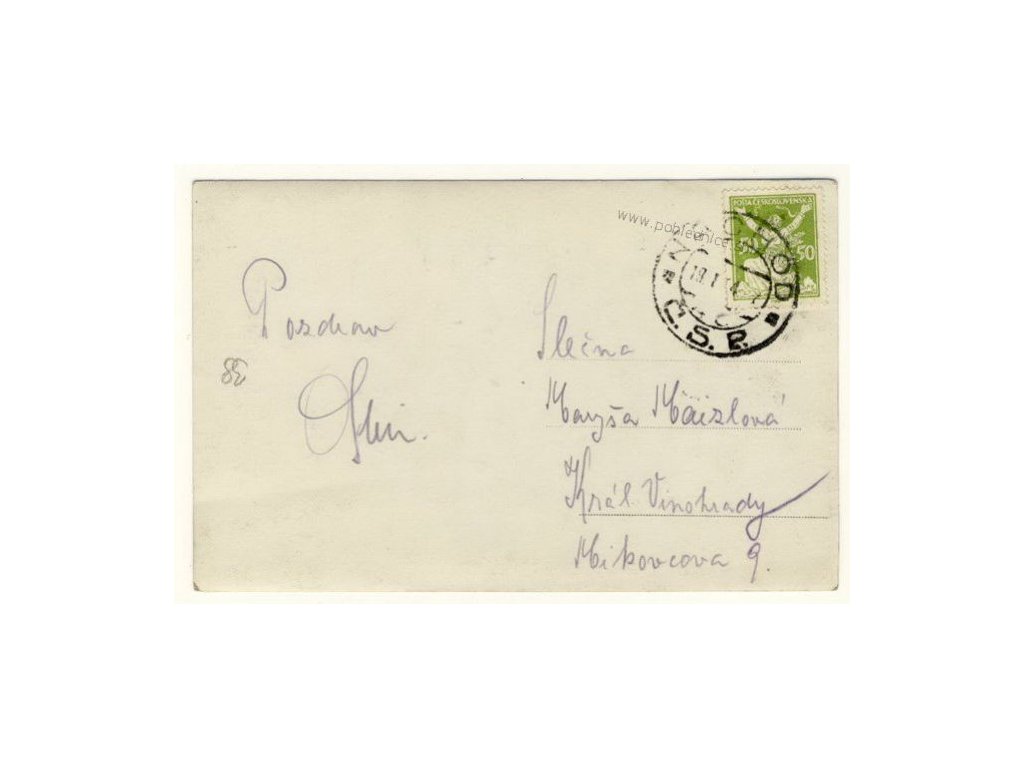 Pozdrav
Slečna
Maryša Maizlová
Král. Vinohrady
Mikovcova 9.
POŠTA ČESKOSLOVENSKÁ
50
Č.S.P.
www.pohlednice